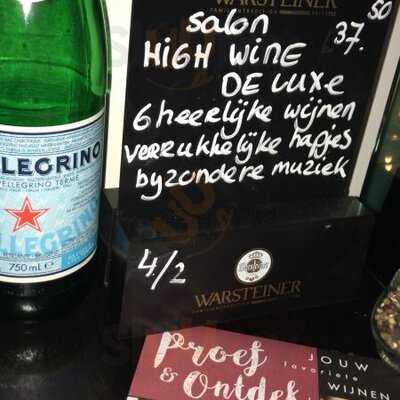 WARSTEINER
salon
37.50
HIGH WINE
DE LUXE
6 heerlijke wijnen
verrukkelijke hapjes
byzondere muziek
4/2
WARSTEINER
LLEGRINO
PELLEGRINO TERME
LEGRINO
750 mL e
Proef
& Ontdek
JOUW
favoriete
WIJNEN